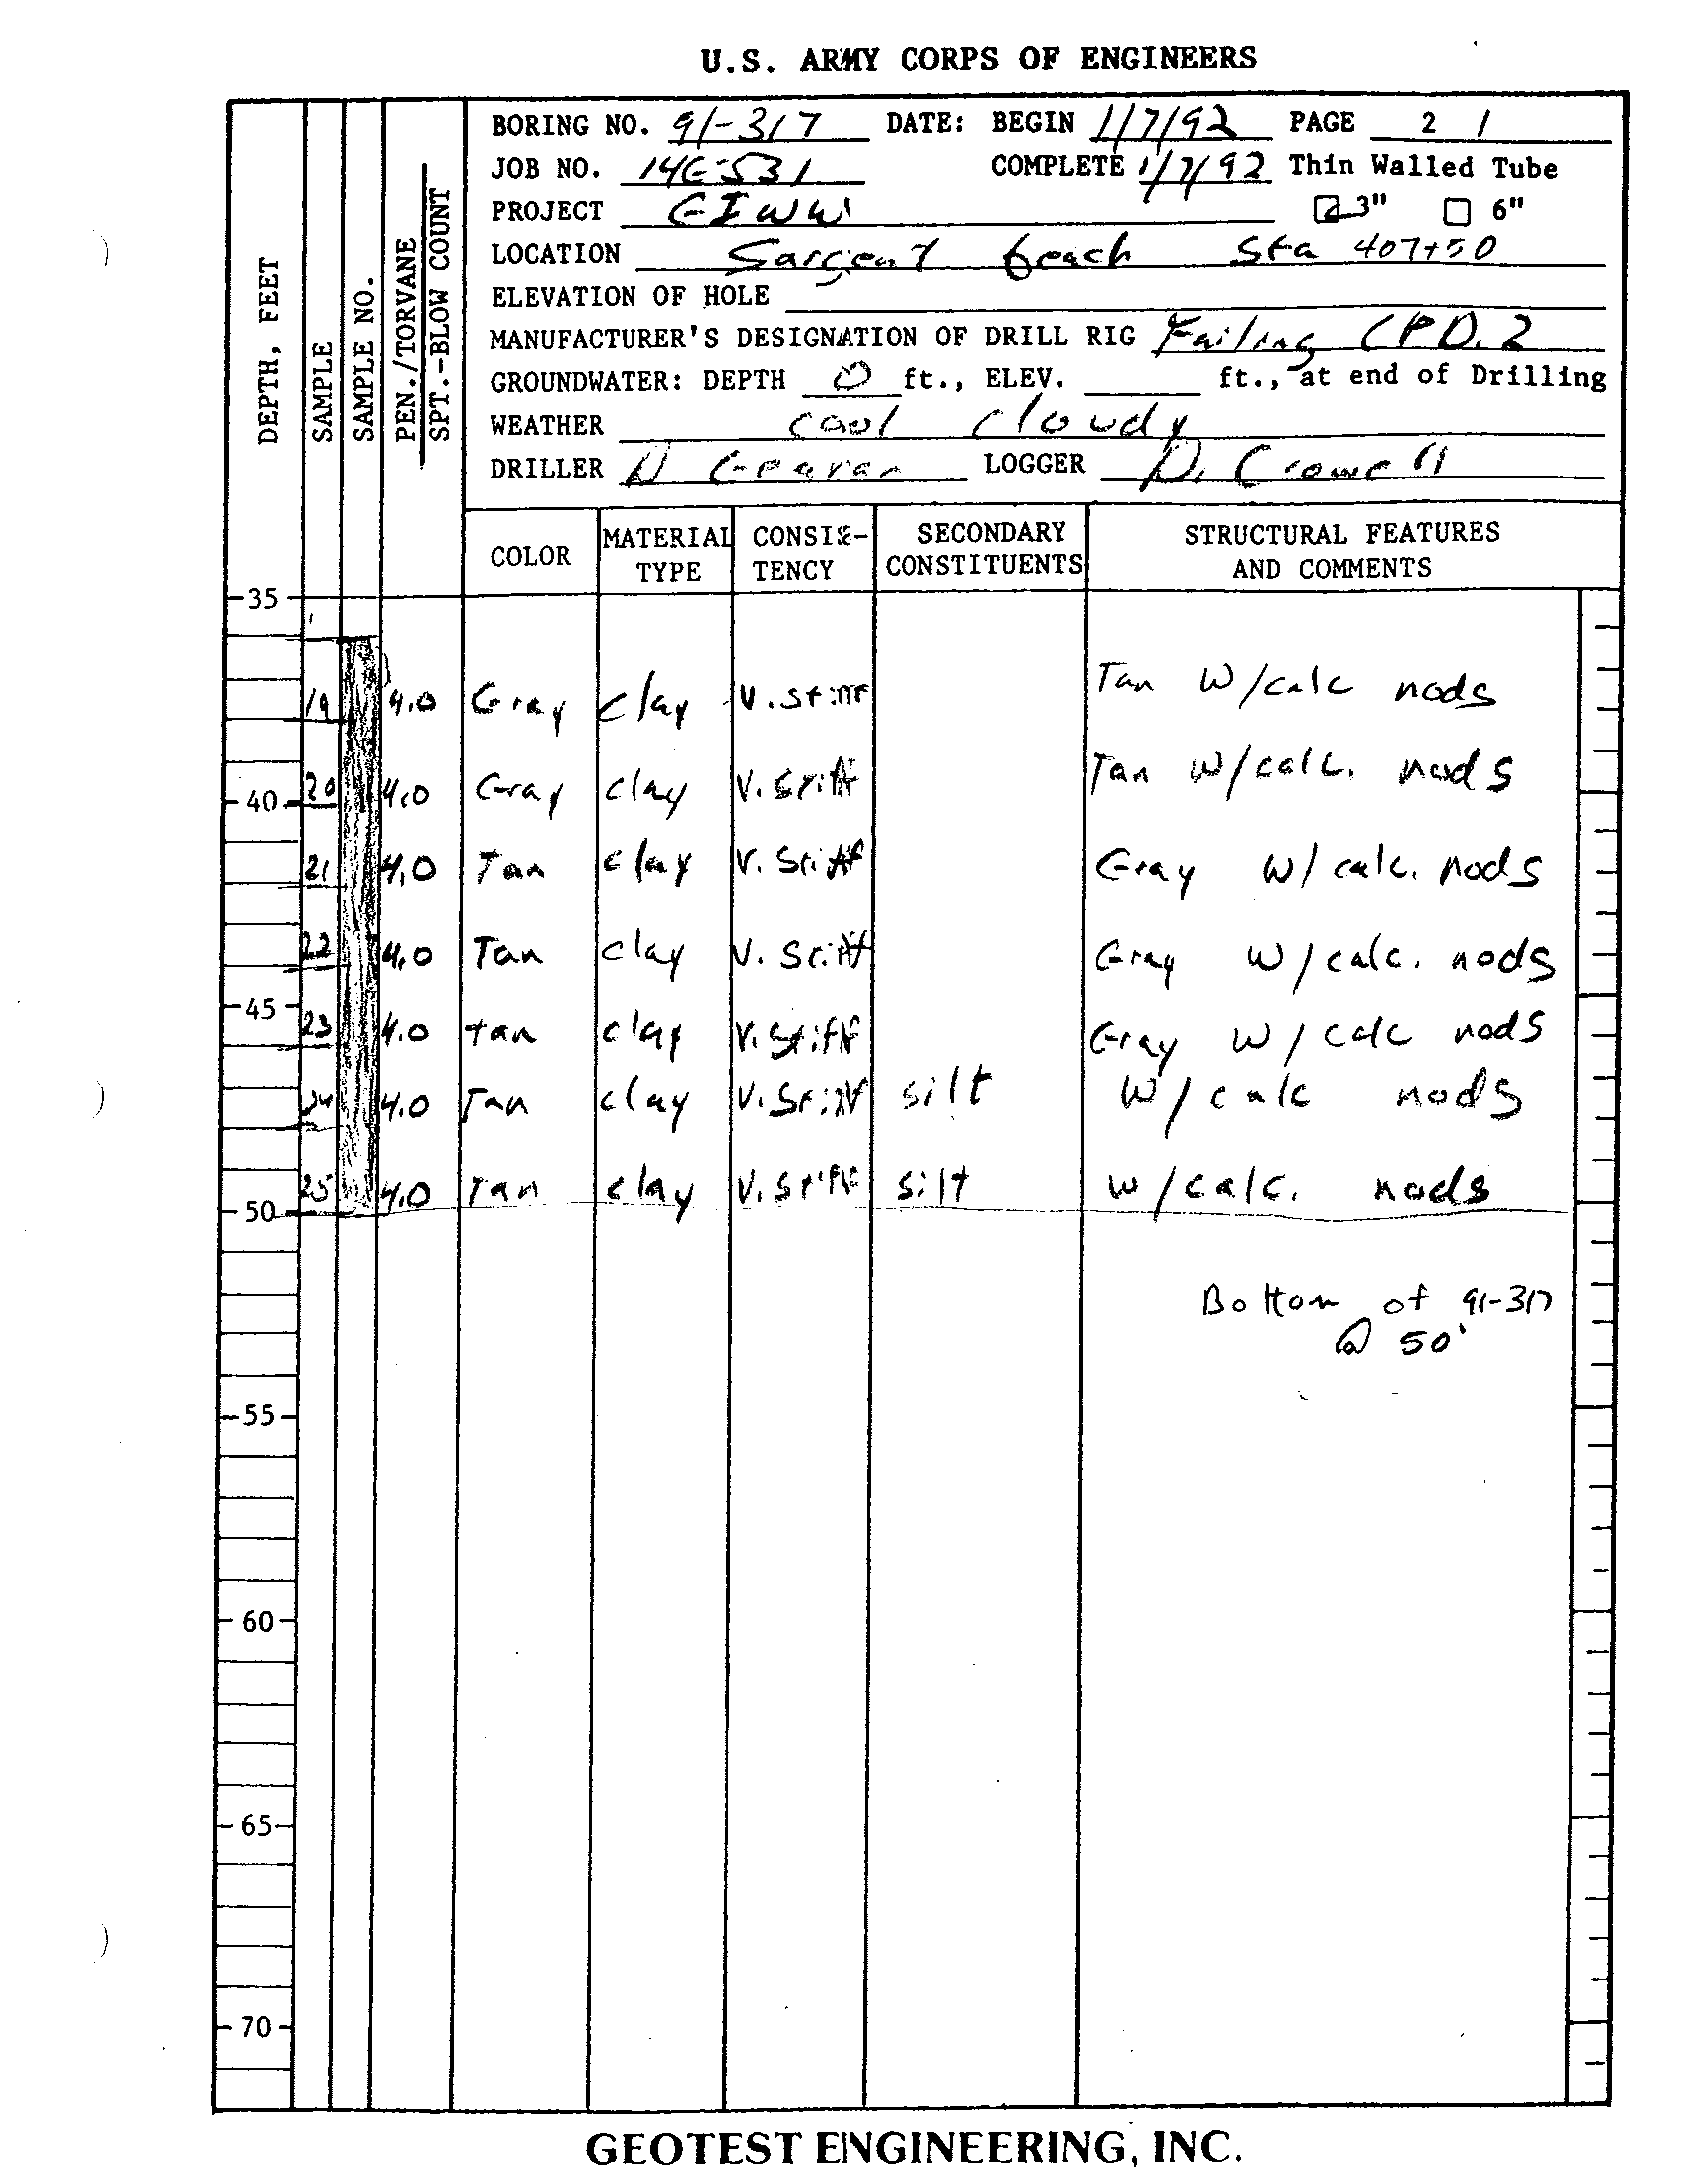 U.S. ARMY CORPS OF ENGINEERS
BORING NO. 91-317 DATE: BEGIN 1/7/92 PAGE 2 /
JOB NO. 14E-531 COMPLETE 1/7/92 Thin Walled Tube
PROJECT GIWW 3" 6"
LOCATION Sargent beach Sta 407+50
ELEVATION OF HOLE
MANUFACTURER'S DESIGNATION OF DRILL RIG Failing CPD.2
GROUNDWATER: DEPTH 0 ft., ELEV. ft., at end of Drilling
WEATHER cool cloudy
DRILLER D LOGGER D. Crowell
DEPTH, FEET
SAMPLE
SAMPLE NO.
PEN./TORVANE
SPT.-BLOW COUNT
COLOR MATERIAL TYPE CONSIS-TENCY SECONDARY CONSTITUENTS STRUCTURAL FEATURES AND COMMENTS
35
19 4.0 Gray clay V. stiff Tan W/calc nods
40 20 4.0 Gray clay V. Stiff Tan W/calc. nods
21 4.0 Tan clay V. Stiff Gray W/ calc. nods
22 4.0 Tan clay V. Stiff Gray W/ calc. nods
45
23 4.0 tan clay V. Stiff Gray W/ calc nods
24 4.0 Tan clay V. Stiff silt W/ calc nods
25 4.0 Tan clay V. Stiff silt W/calc. nods
50
Bottom of 91-317
@ 50'
55
60
65
70
GEOTEST ENGINEERING, INC.